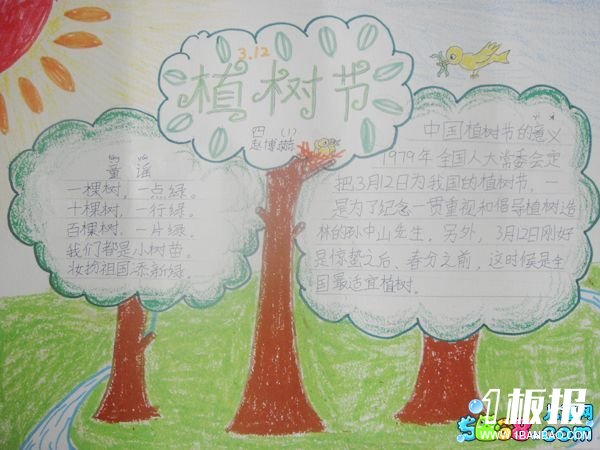 3.12
植树节
四（1）
童谣
一棵树，一点绿。
十棵树，一行绿。
百棵树，一片绿。
我们都是小树苗。
妆扮祖国添新绿。
中国植树节的意义
1979年全国人大常委会定
把3月12日为我国的植树节，一
是为了纪念一贯重视和倡导植树造
林的孙中山先生，另外，3月12日刚好
是惊蛰之后，春分之前，这时候是全
国最适宜植树。
1板报
WWW.1BANBAO.COM
.com